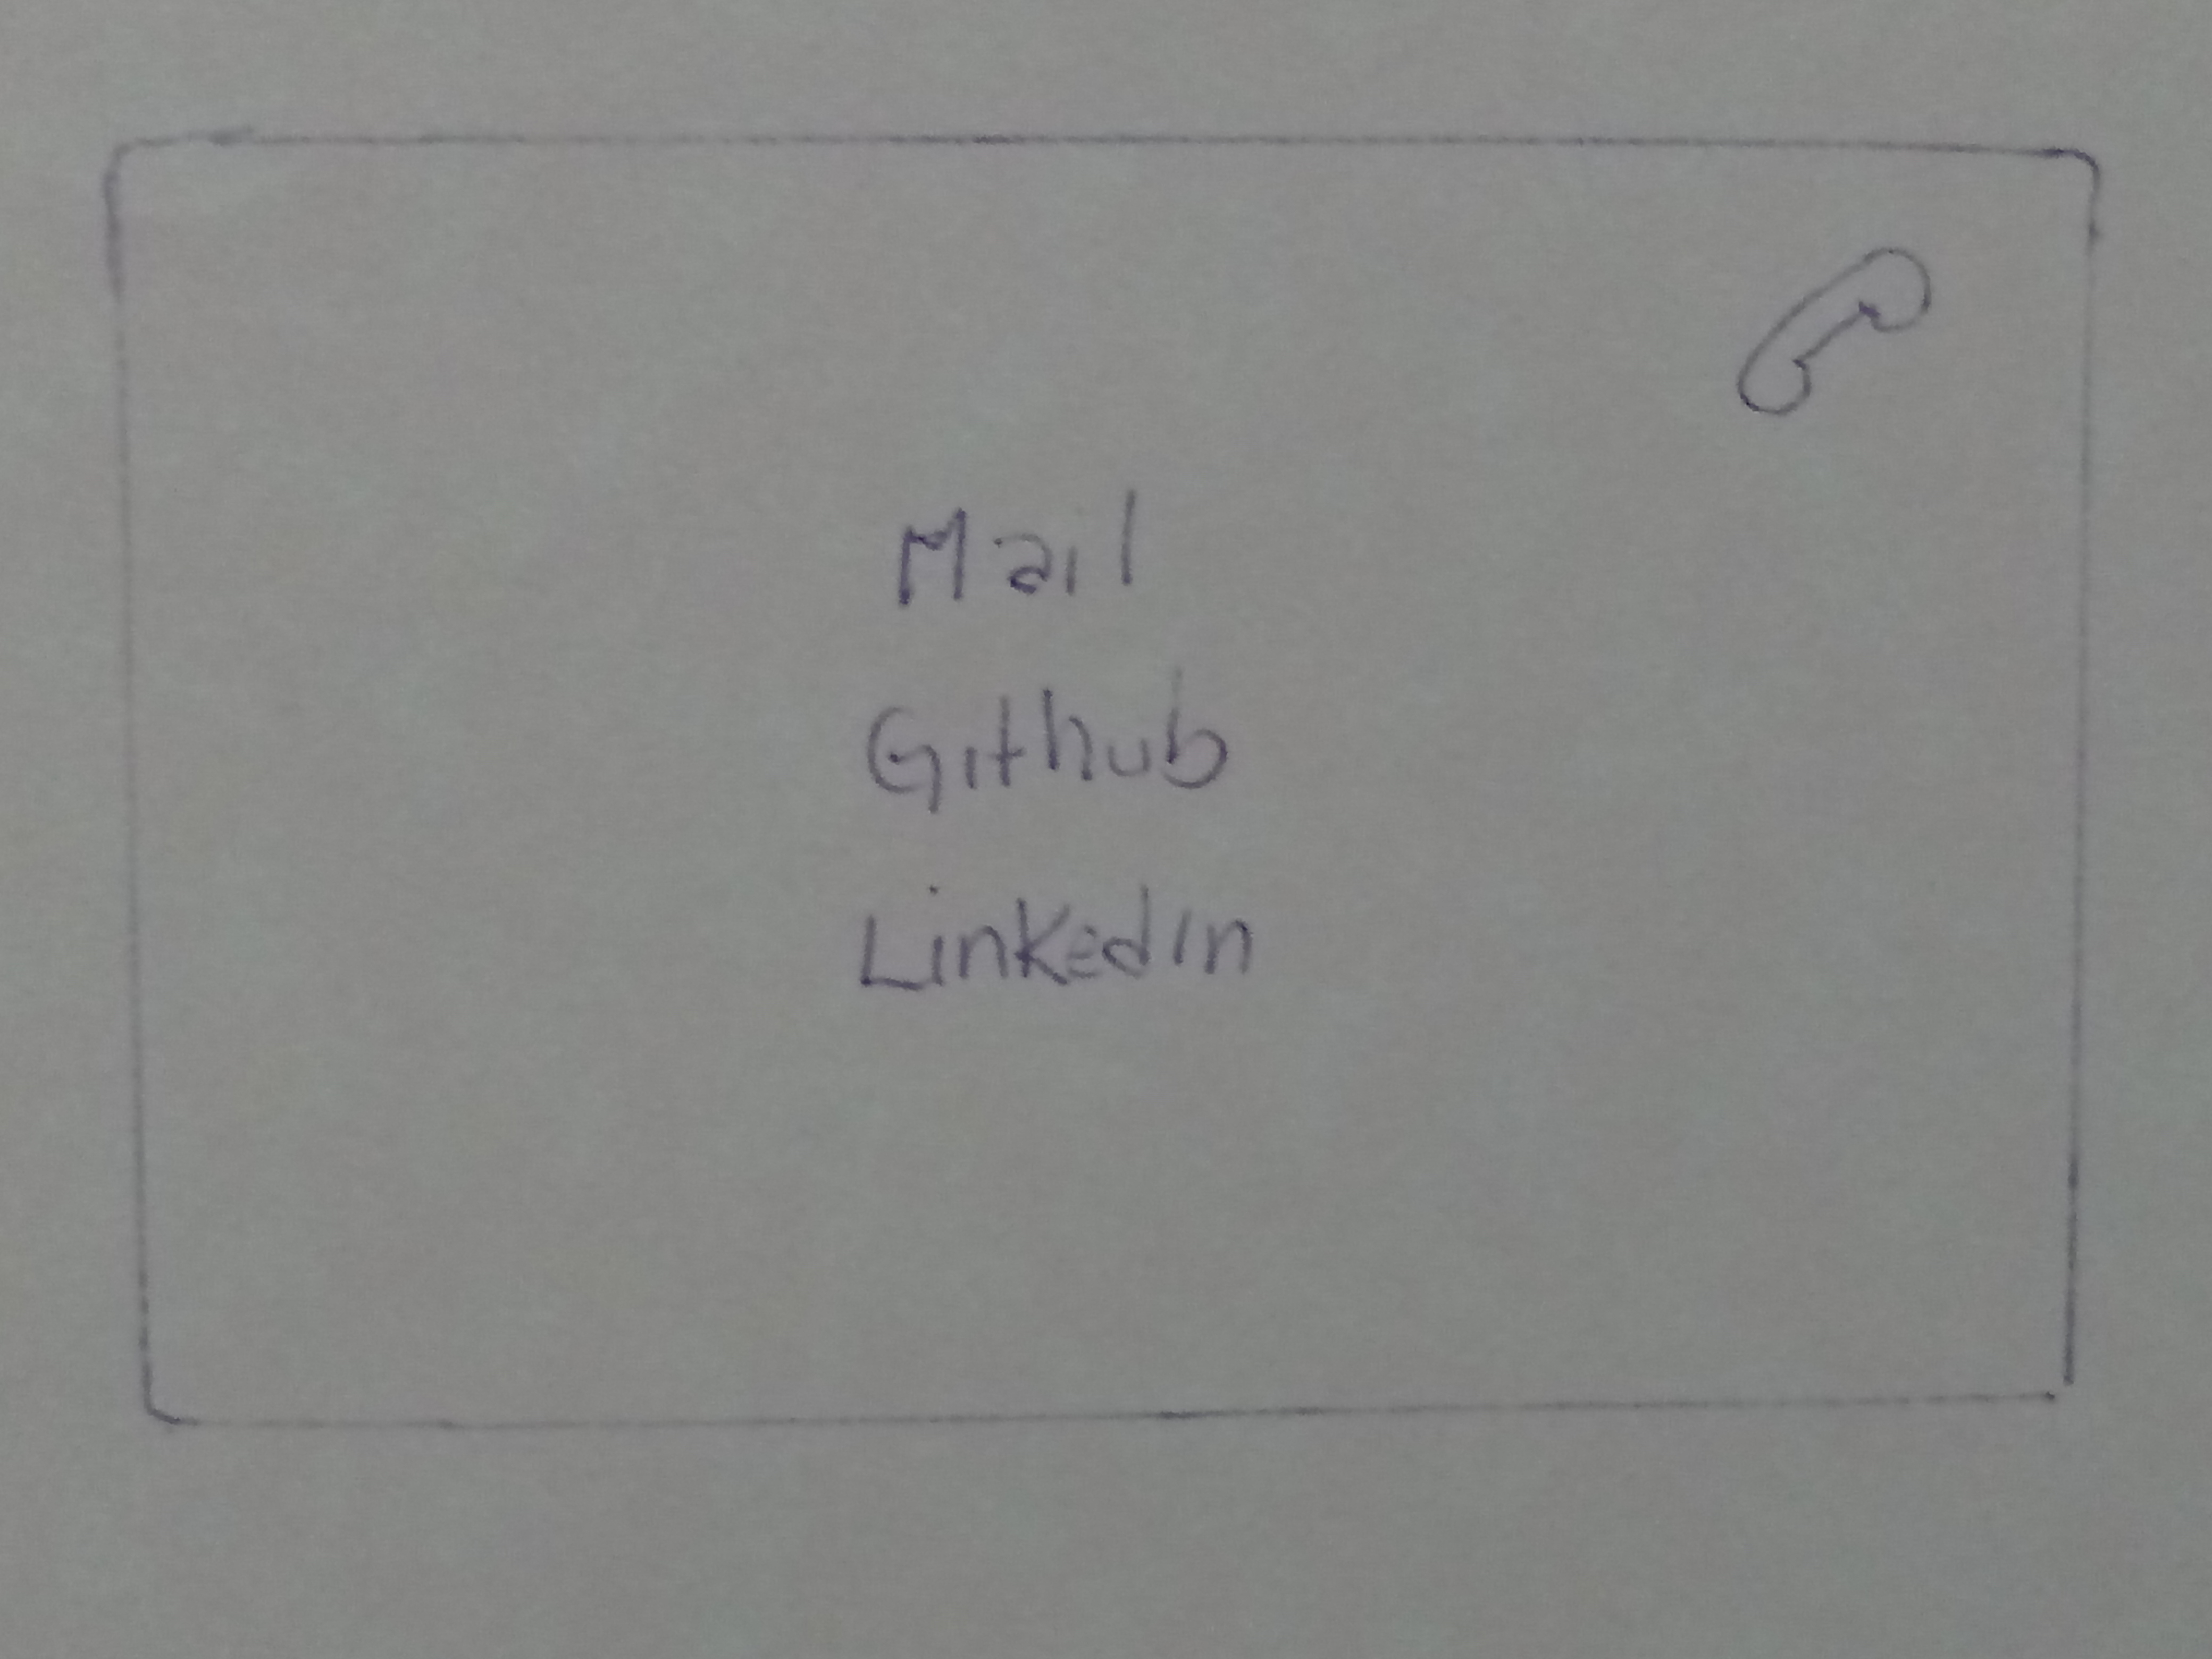 Mail
Github
LinkedIn